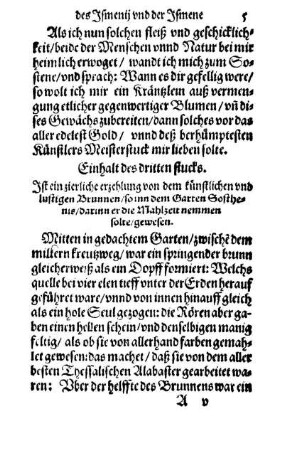 des Ismenij vnd der Ismene 5
Als ich nun solchen fleiß vnd geschicklich-
keit / beide der Menschen vnnd Natur bey mir
heimlich erwoget / wandt ich mich zum So-
stene / vnd sprach: Wann es dir gefellig were /
so wolt ich mir ein Kräntzlein auß vermen-
gung etlicher gegenwertiger Blumen / vn̄ di-
ses Gewächs zubereiten / dann solches vor das
aller edelest Gold / vnnd deß berhümptesten
Künstlers Meisterstuck mir lieben solte.
Einhalt des dritten stucks.
Ist ein zierliche erzehlung von dem künstlichen vnd
lustigen Brunnen / so inn dem Garten Sosthe-
nis / darinn er die Mahlzeit nemmen
solte / gewesen.
Mitten in gedachtem Garten / zwischē dem
mitlern kreutzweg / war ein springender brunn
gleicher weiß als ein Dopff formiert: Welchs
quelle bey vier elen tieff vnter der Erden herauf
geführet ware / vnnd von innen hinauff gleich
als ein hole Seul gezogen: die Rören aber ga-
ben einen hellen schein / vnd denselbigen manig
feltig / als ob sie von allerhand farben gemah-
let gewesen: das machet / daß sie von dem aller
besten Thessalischen Alabaster gearbeitet wa-
ren: Vber der helffte des Brunnens war ein
A v